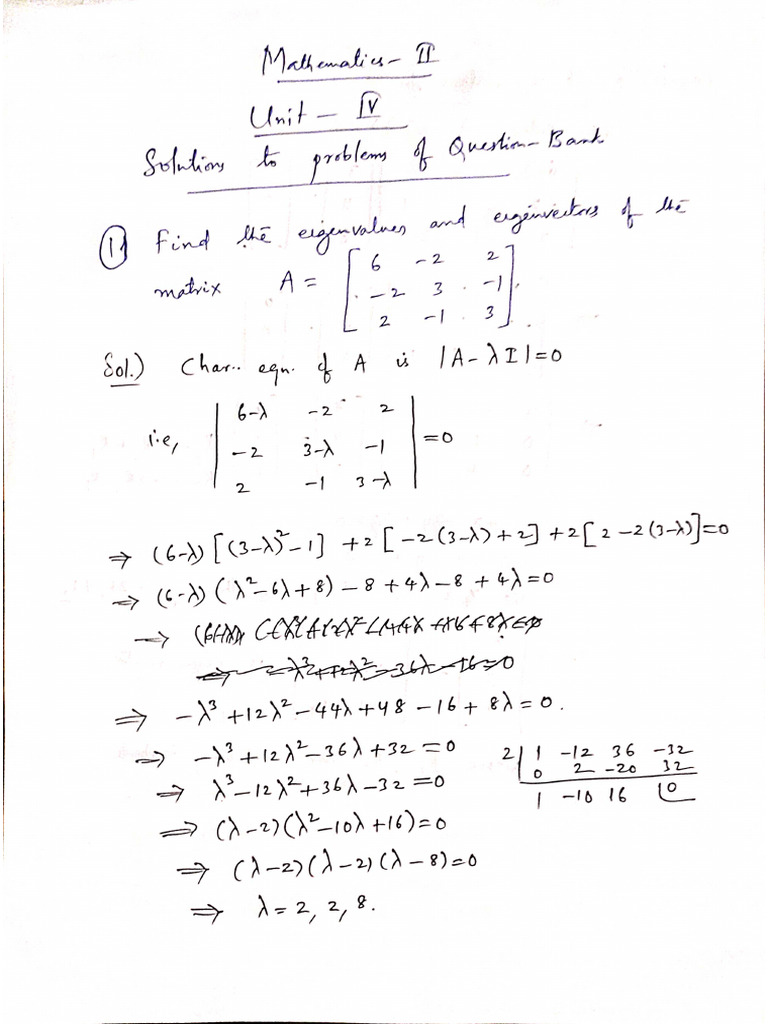 Mathematics - II
Unit - IV
Solutions to problems of Question-Bank
1) Find the eigenvalues and eigenvectors of the
matrix A = [ 6 -2 2
-2 3 -1
2 -1 3 ].
Sol.) Char.. eqn. of A is |A-λI|=0
i.e, | 6-λ -2 2
-2 3-λ -1
2 -1 3-λ | =0
⇒ (6-λ)[(3-λ)²-1] +2[-2(3-λ)+2] +2[2-2(3-λ)]=0
⇒ (6-λ)(λ²-6λ+8)-8+4λ-8+4λ=0
⇒ -λ³+12λ²-44λ+48-16+8λ=0.
⇒ -λ³+12λ²-36λ+32=0
⇒ λ³-12λ²+36λ-32=0
⇒ (λ-2)(λ²-10λ+16)=0
⇒ (λ-2)(λ-2)(λ-8)=0
⇒ λ=2, 2, 8.
2| 1 -12 36 -32
0 2 -20 32
1 -10 16 |0